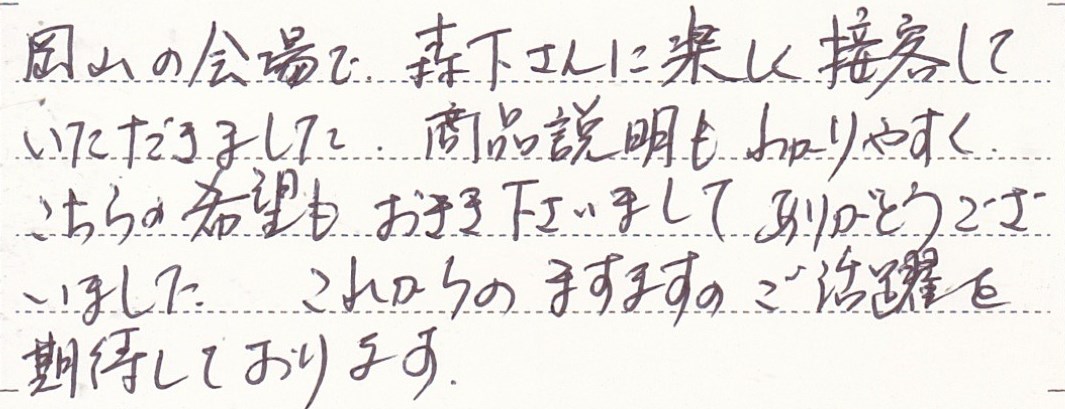 岡山の会場で、森下さんに楽しく接客して
いただきました。商品説明もわかりやすく、
こちらの希望もおきき下さいましてありがとうござ
いました。これからのますますのご活躍を
期待しております。